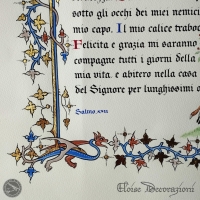 sotto gli occhi dei miei nemici
mio capo. Il mio calice trabo
Felicita e grazia mi saranno
compagne tutti i giorni della
mia vita e abitero nella casa
del Signore per lunghissimi
Salmo
Eloise Decorazioni